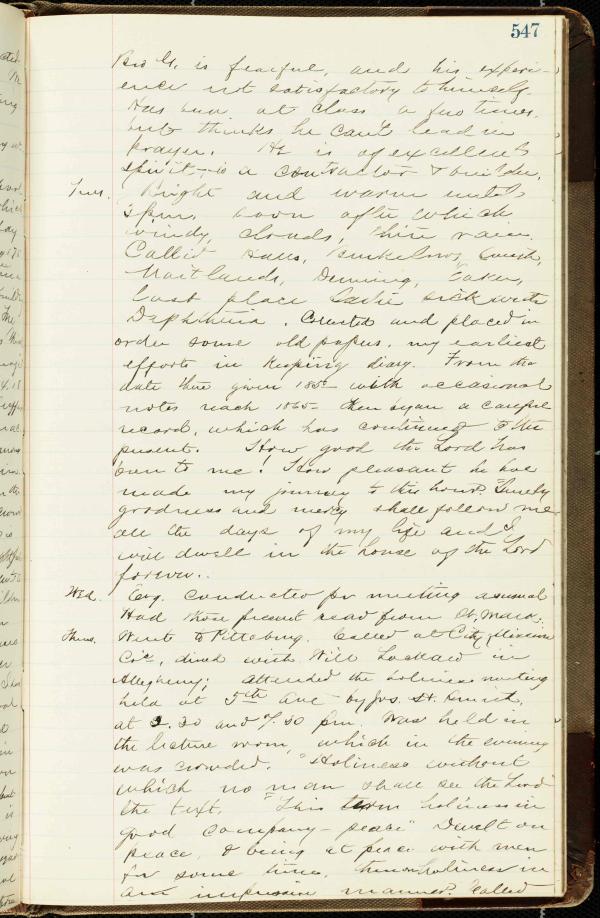 547
Bro G. is fearful, and his experi-
ence not satisfactory to himself.
Has been at class a few times.
but thinks he can't lead in
prayer. He is of excellent
spirit - is a contractor & builder.
Tues. Bright and warm until
3 pm, soon after which
windy, clouds, then rain.
Called Haus,
Maitlands, Denning, Eaker,
last place Sadie sick with
Diphtheria. Counted and placed in
order some old papers, my earliest
efforts in keeping diary. From the
date there given 1855 with occasional
notes reach 1865 - then began a careful
record, which has continued to the
present. How good the Lord has
been to me! How pleasant he has
made my journey to this hour. "Surely
goodness and mercy shall follow me
all the days of my life and I
will dwell in the house of the Lord
forever."
Wed. Evg. conducted pr meeting as usual
Had those present read from St. Mark.
Thurs. Went to Pittsburg. Called at City Mission
dined with Will Lockard in
Allegheny; attended the holiness meeting
held at 5th Ave - by Jos. H. Smith,
at 2.30 and 7.30 pm. Was held in
the lecture room, which in the evening
was crowded. "Holiness without
which no man shall see the Lord"
the text. "This term holiness in
good company - peace" Dwelt on
peace, & being at peace with men
for some time, then on holiness in
an impressive manner. Called